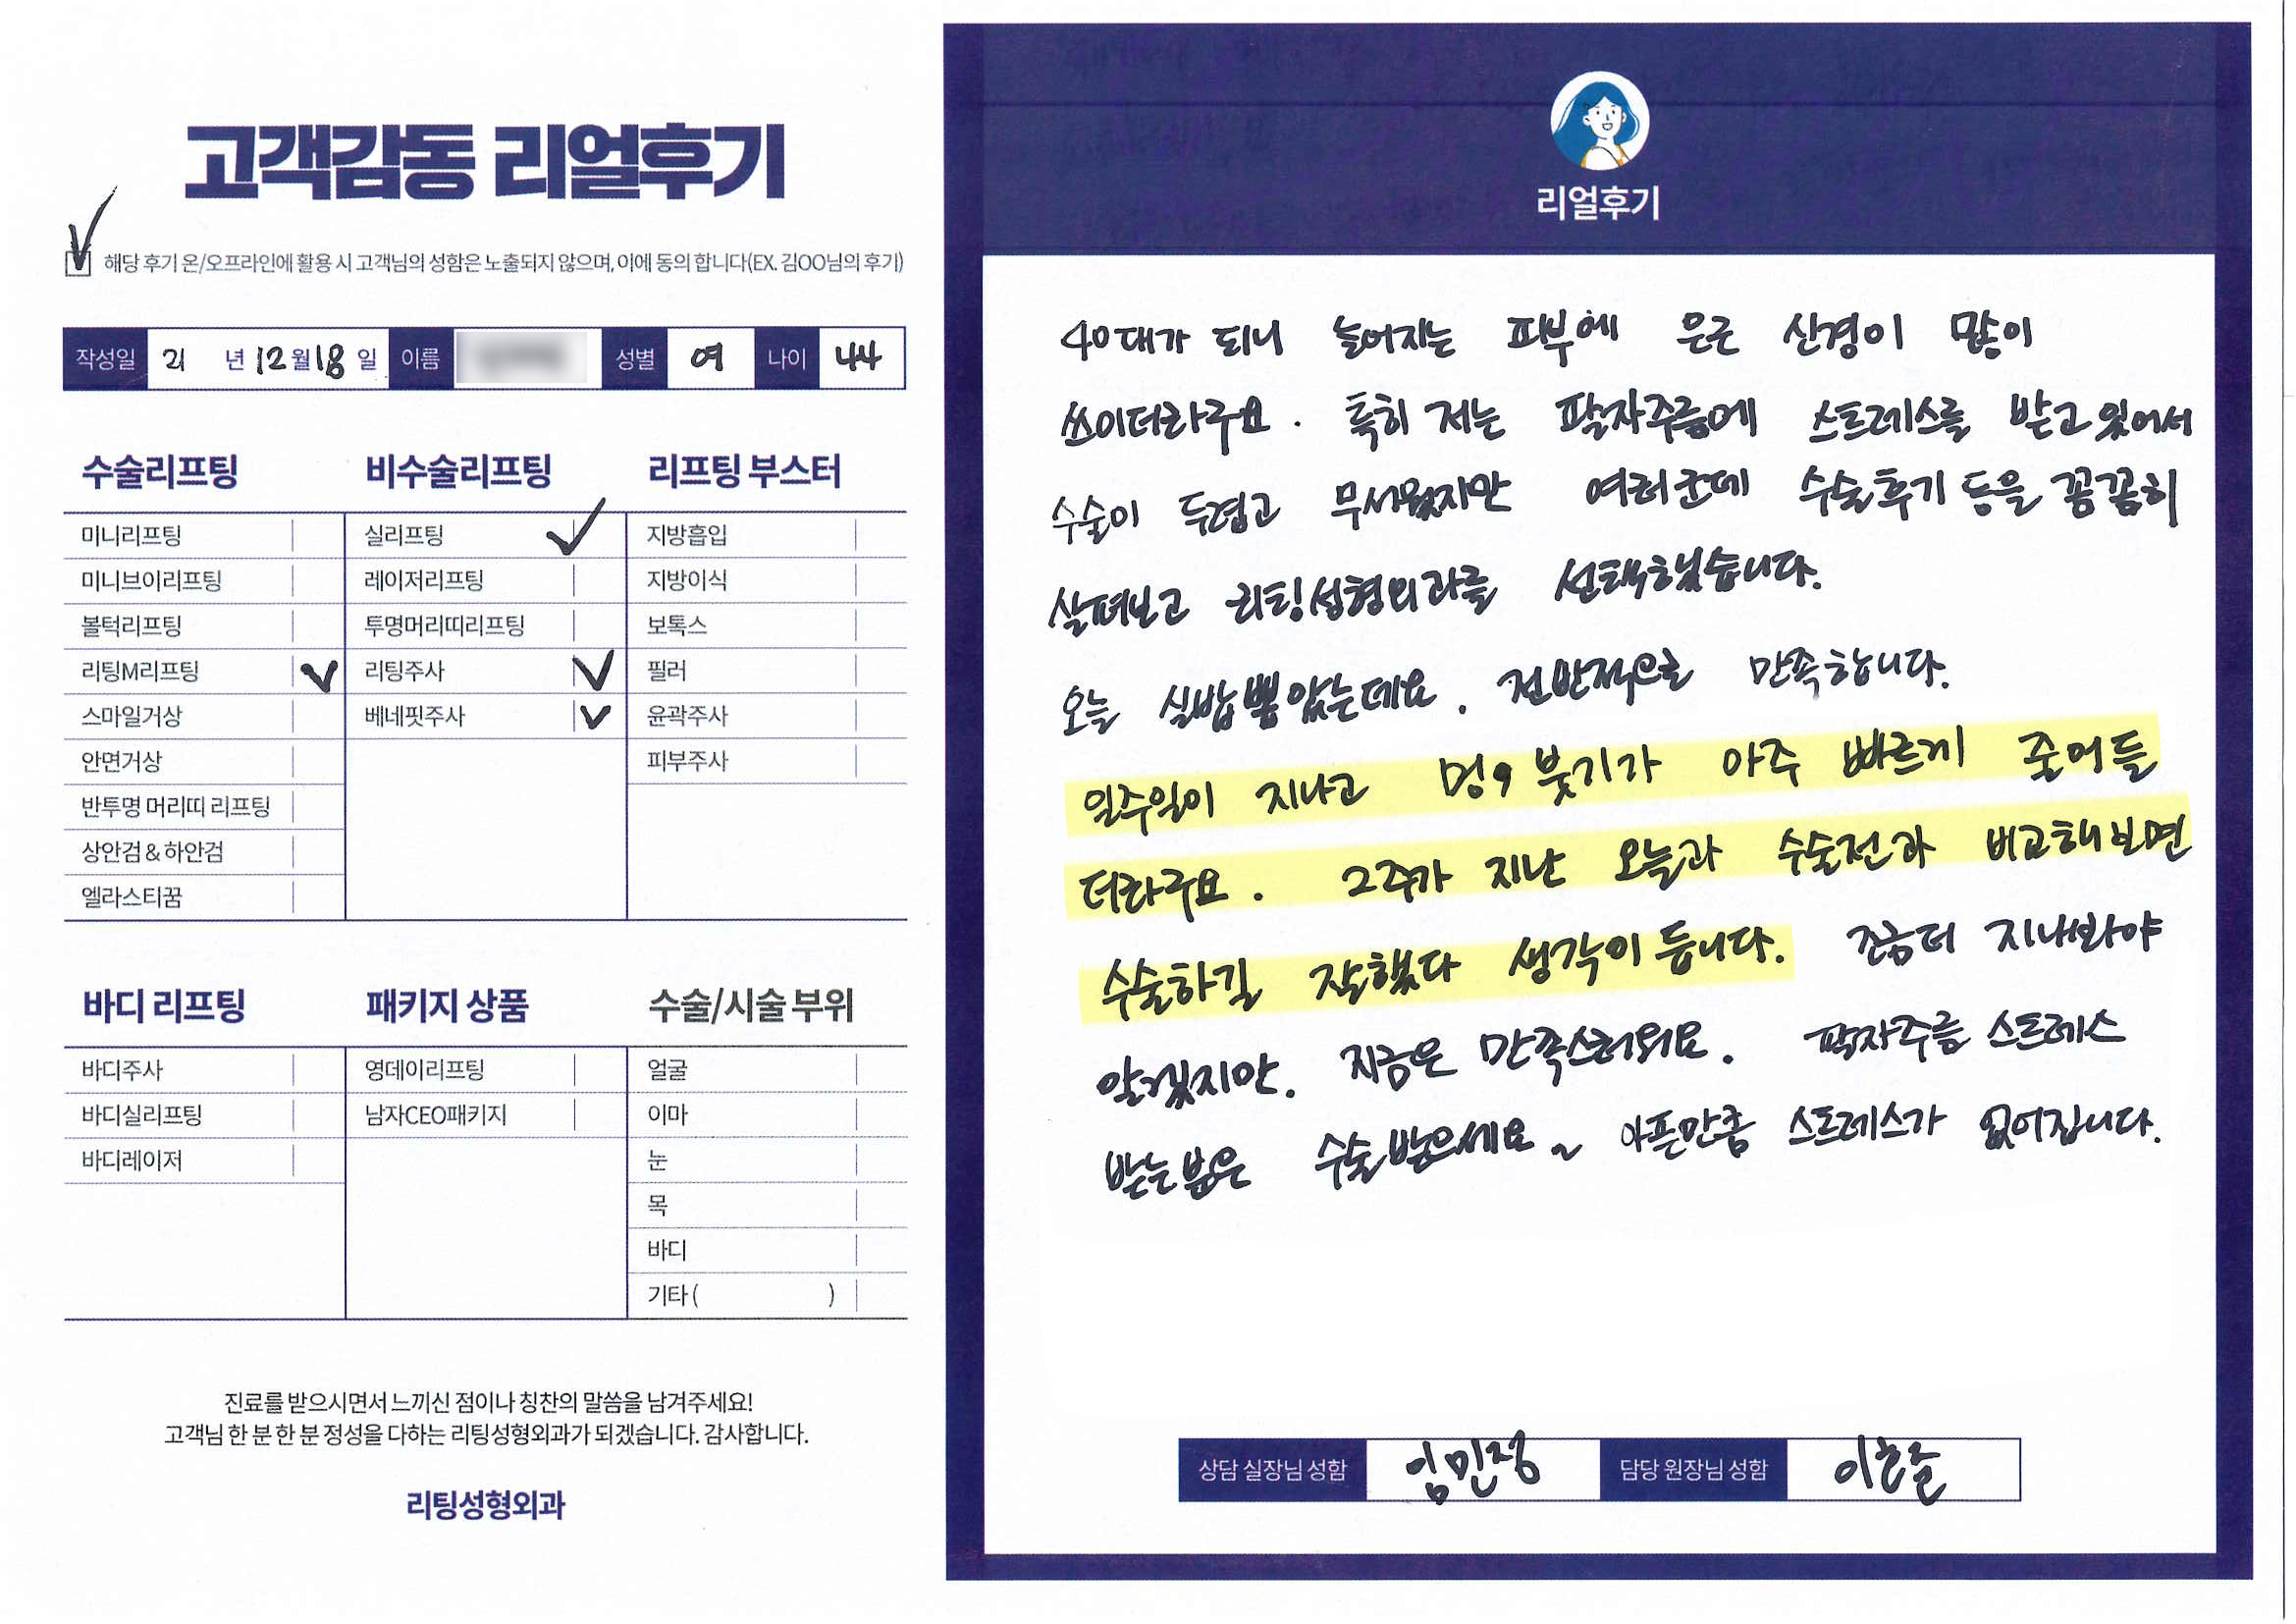 고객감동 리얼후기
해당 후기 온/오프라인에 활용 시 고객님의 성함은 노출되지 않으며, 이에 동의 합니다(EX. 김OO님의 후기)
작성일 21 년 12월 18 일 이름 성별 여 나이 44
수술리프팅
미니리프팅
미니브이리프팅
볼턱리프팅
리팅M리프팅
스마일거상
안면거상
반투명 머리띠 리프팅
상안검 & 하안검
엘라스티꿈
비수술리프팅
실리프팅
레이저리프팅
투명머리띠리프팅
리팅주사
베네핏주사
리프팅 부스터
지방흡입
지방이식
보톡스
필러
윤곽주사
피부주사
바디 리프팅
바디주사
바디실리프팅
바디레이저
패키지 상품
영데이리프팅
남자CEO패키지
수술/시술 부위
얼굴
이마
눈
목
바디
기타 ( )
진료를 받으시면서 느끼신 점이나 칭찬의 말씀을 남겨주세요!
고객님 한 분 한 분 정성을 다하는 리팅성형외과가 되겠습니다. 감사합니다.
리팅성형외과
리얼후기
40대가 되니 늘어지는 피부에 은근 신경이 많이
쓰이더라구요. 특히 저는 팔자주름에 스트레스를 받고 있어서
수술이 두렵고 무서웠지만 여러군데 수술후기 등을 꼼꼼히
살펴보고 리팅성형외과를 선택했습니다.
오늘 실밥뽑았는데요. 전반적으로 만족합니다.
일주일이 지나고 멍, 붓기가 아주 빠르게 줄어들
더라구요. 2주가 지난 오늘과 수술전과 비교해보면
수술하길 잘했다 생각이 듭니다. 조금더 지내봐야
알겠지만. 지금은 만족스러워요. 팔자주름 스트레스
받는분은 수술받으세요~ 아픈만큼 스트레스가 없어집니다.
상담 실장님 성함 임민정 담당 원장님 성함